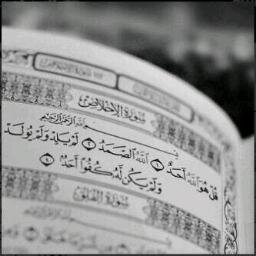 سُورَةُ الإِخْلَاصِ
بِسْمِ اللَّهِ الرَّحْمَٰنِ الرَّحِيمِ
قُلْ هُوَ اللَّهُ أَحَدٌ ١ اللَّهُ الصَّمَدُ ٢ لَمْ يَلِدْ وَلَمْ يُولَدْ
٣ وَلَمْ يَكُن لَّهُ كُفُوًا أَحَدٌ ٤
سُورَةُ الْفَلَقِ